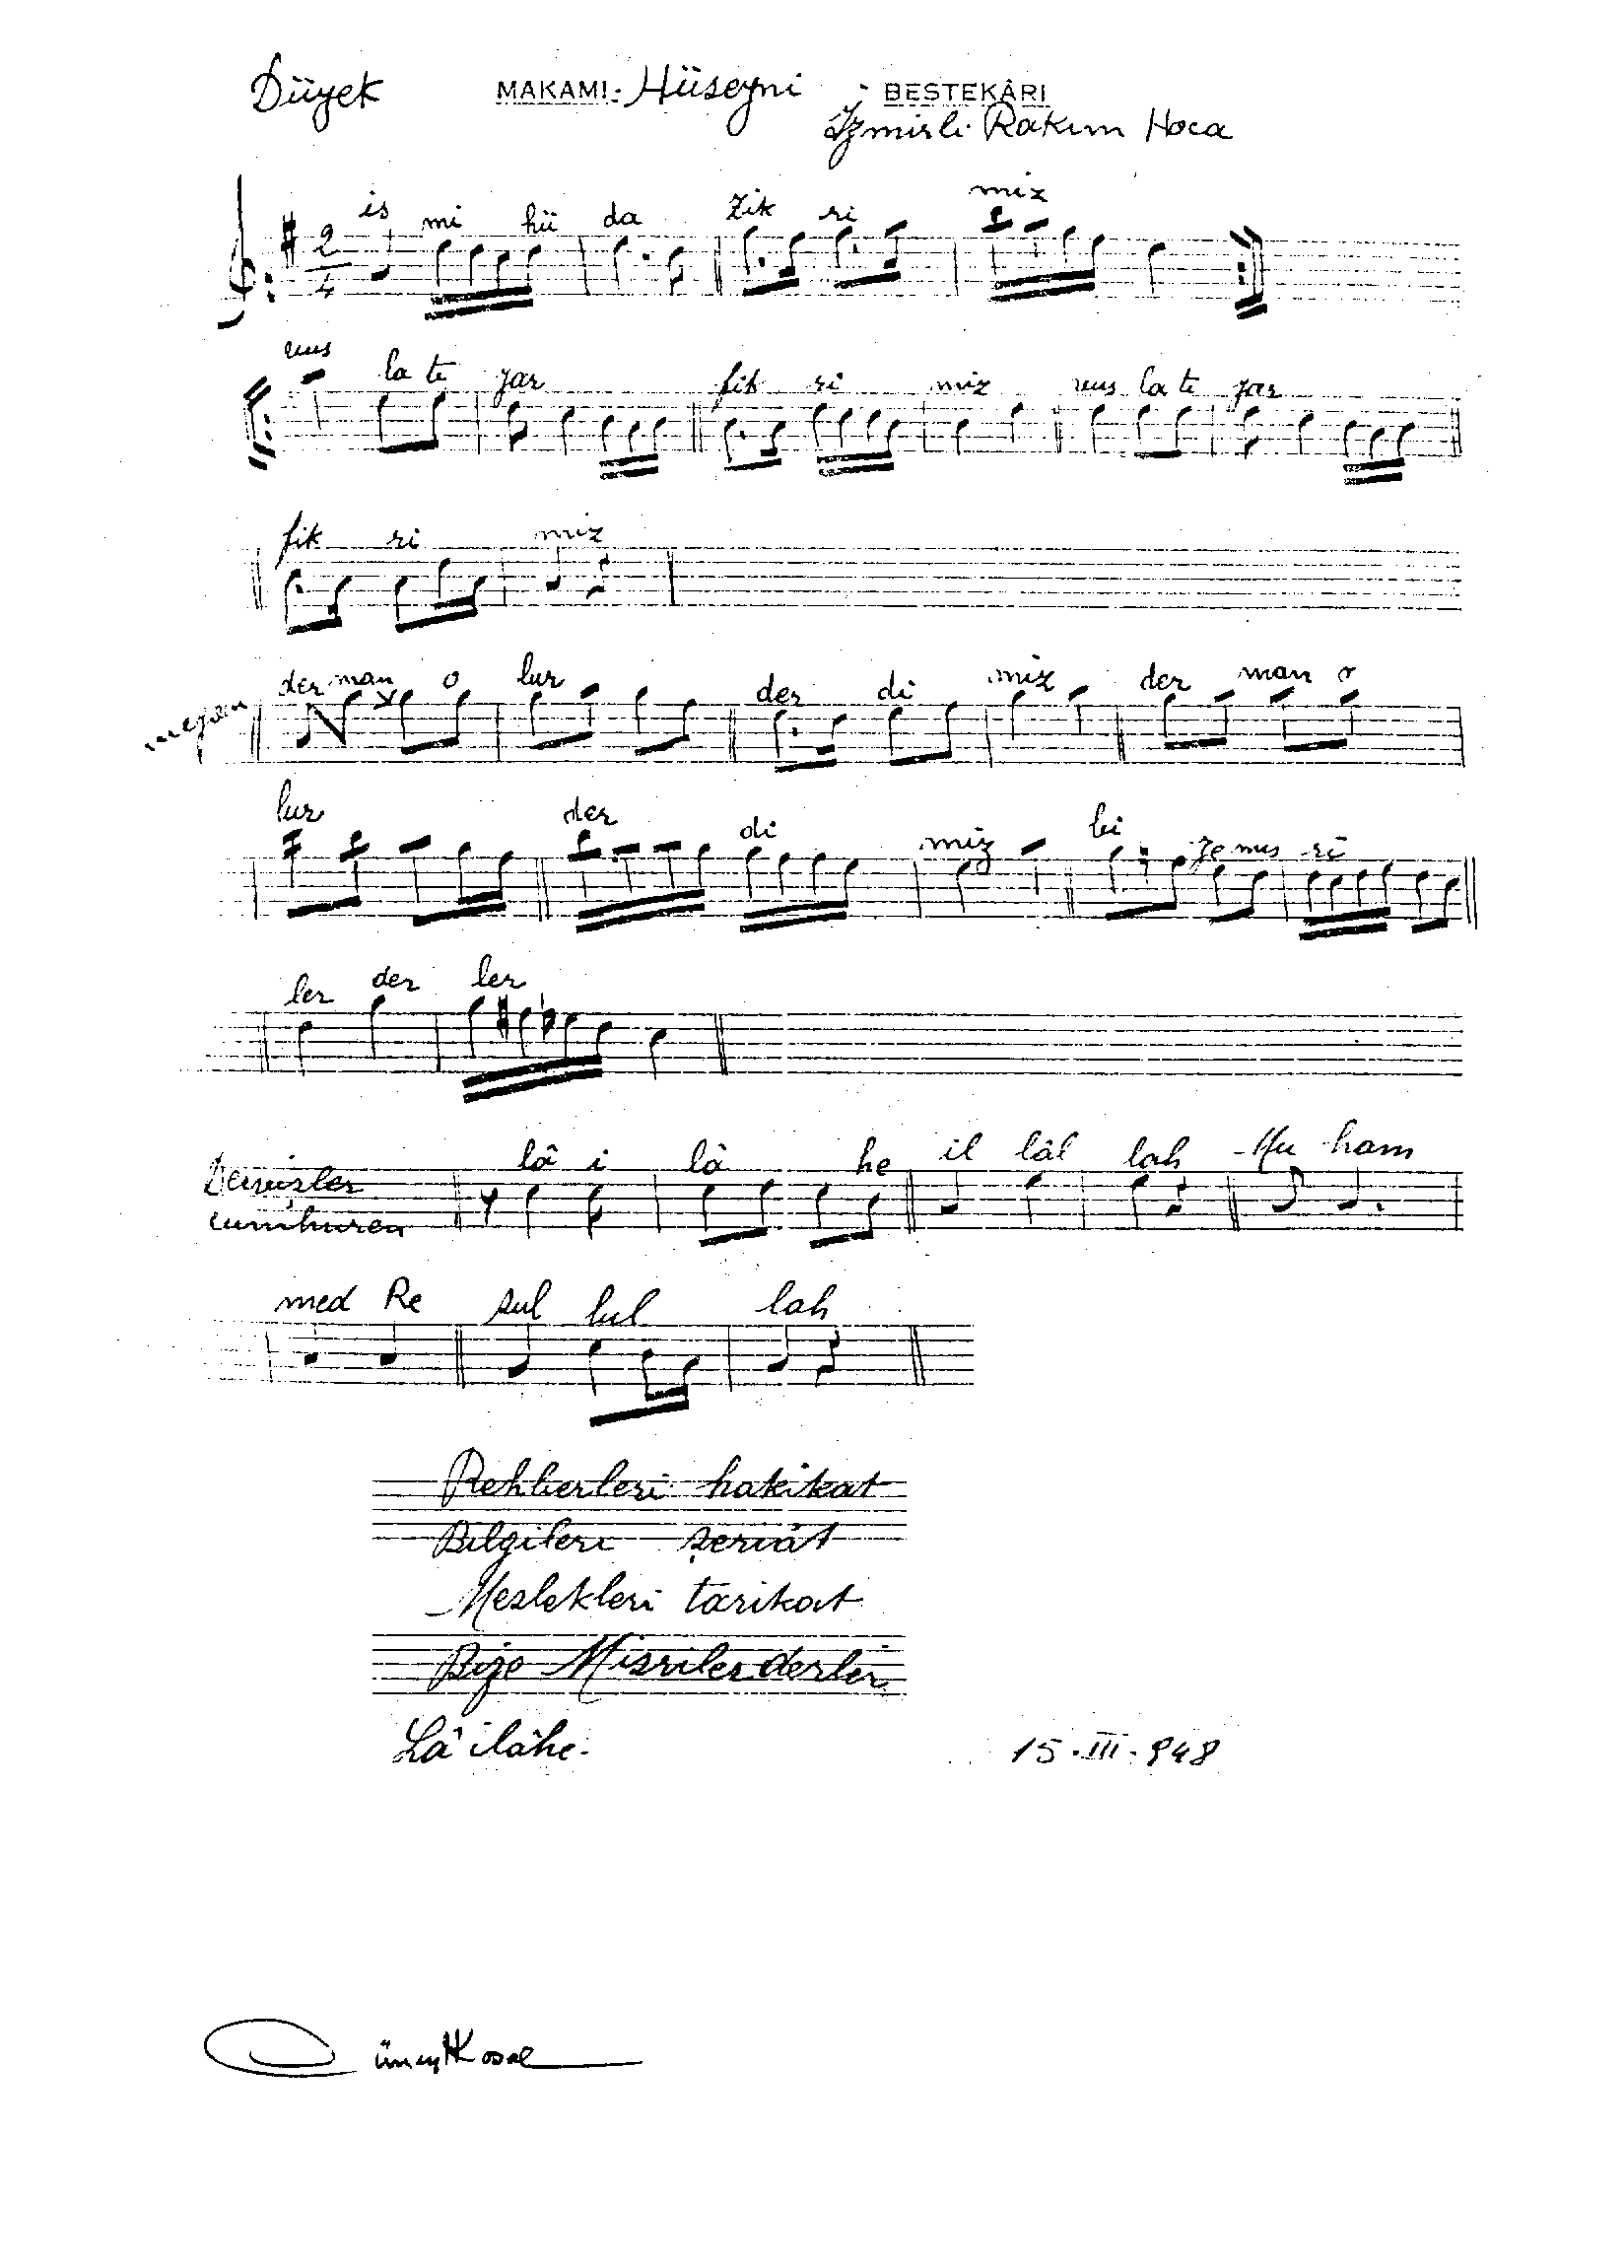 Düyek MAKAMI: Hüseyni BESTEKÂRI
İzmirli Rakım Hoca
is mi hü da zik ri miz
2
4
vus la te yar fik ri miz vus la te yar
fik ri miz
meyan der man o lur der di miz der man o
lur der di miz bi ze mıs rî
ler der ler
Dervişler cumhuren lâ i lâ he il lâl lah Mu ham
med Re sul lul lah
Rehberleri hakikat
Bilgileri şeriât
Meslekleri tarikat
Bize Mısriler derler
Lâ ilâhe.
15.III.948
Cüneyt Kosal